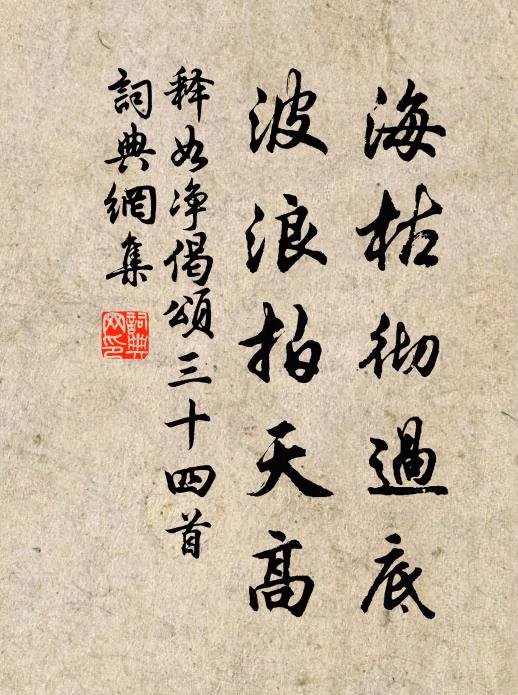 海枯彻過底
波浪拍天高
释如净偈頌三十四首
詞典網集
詞典
网印